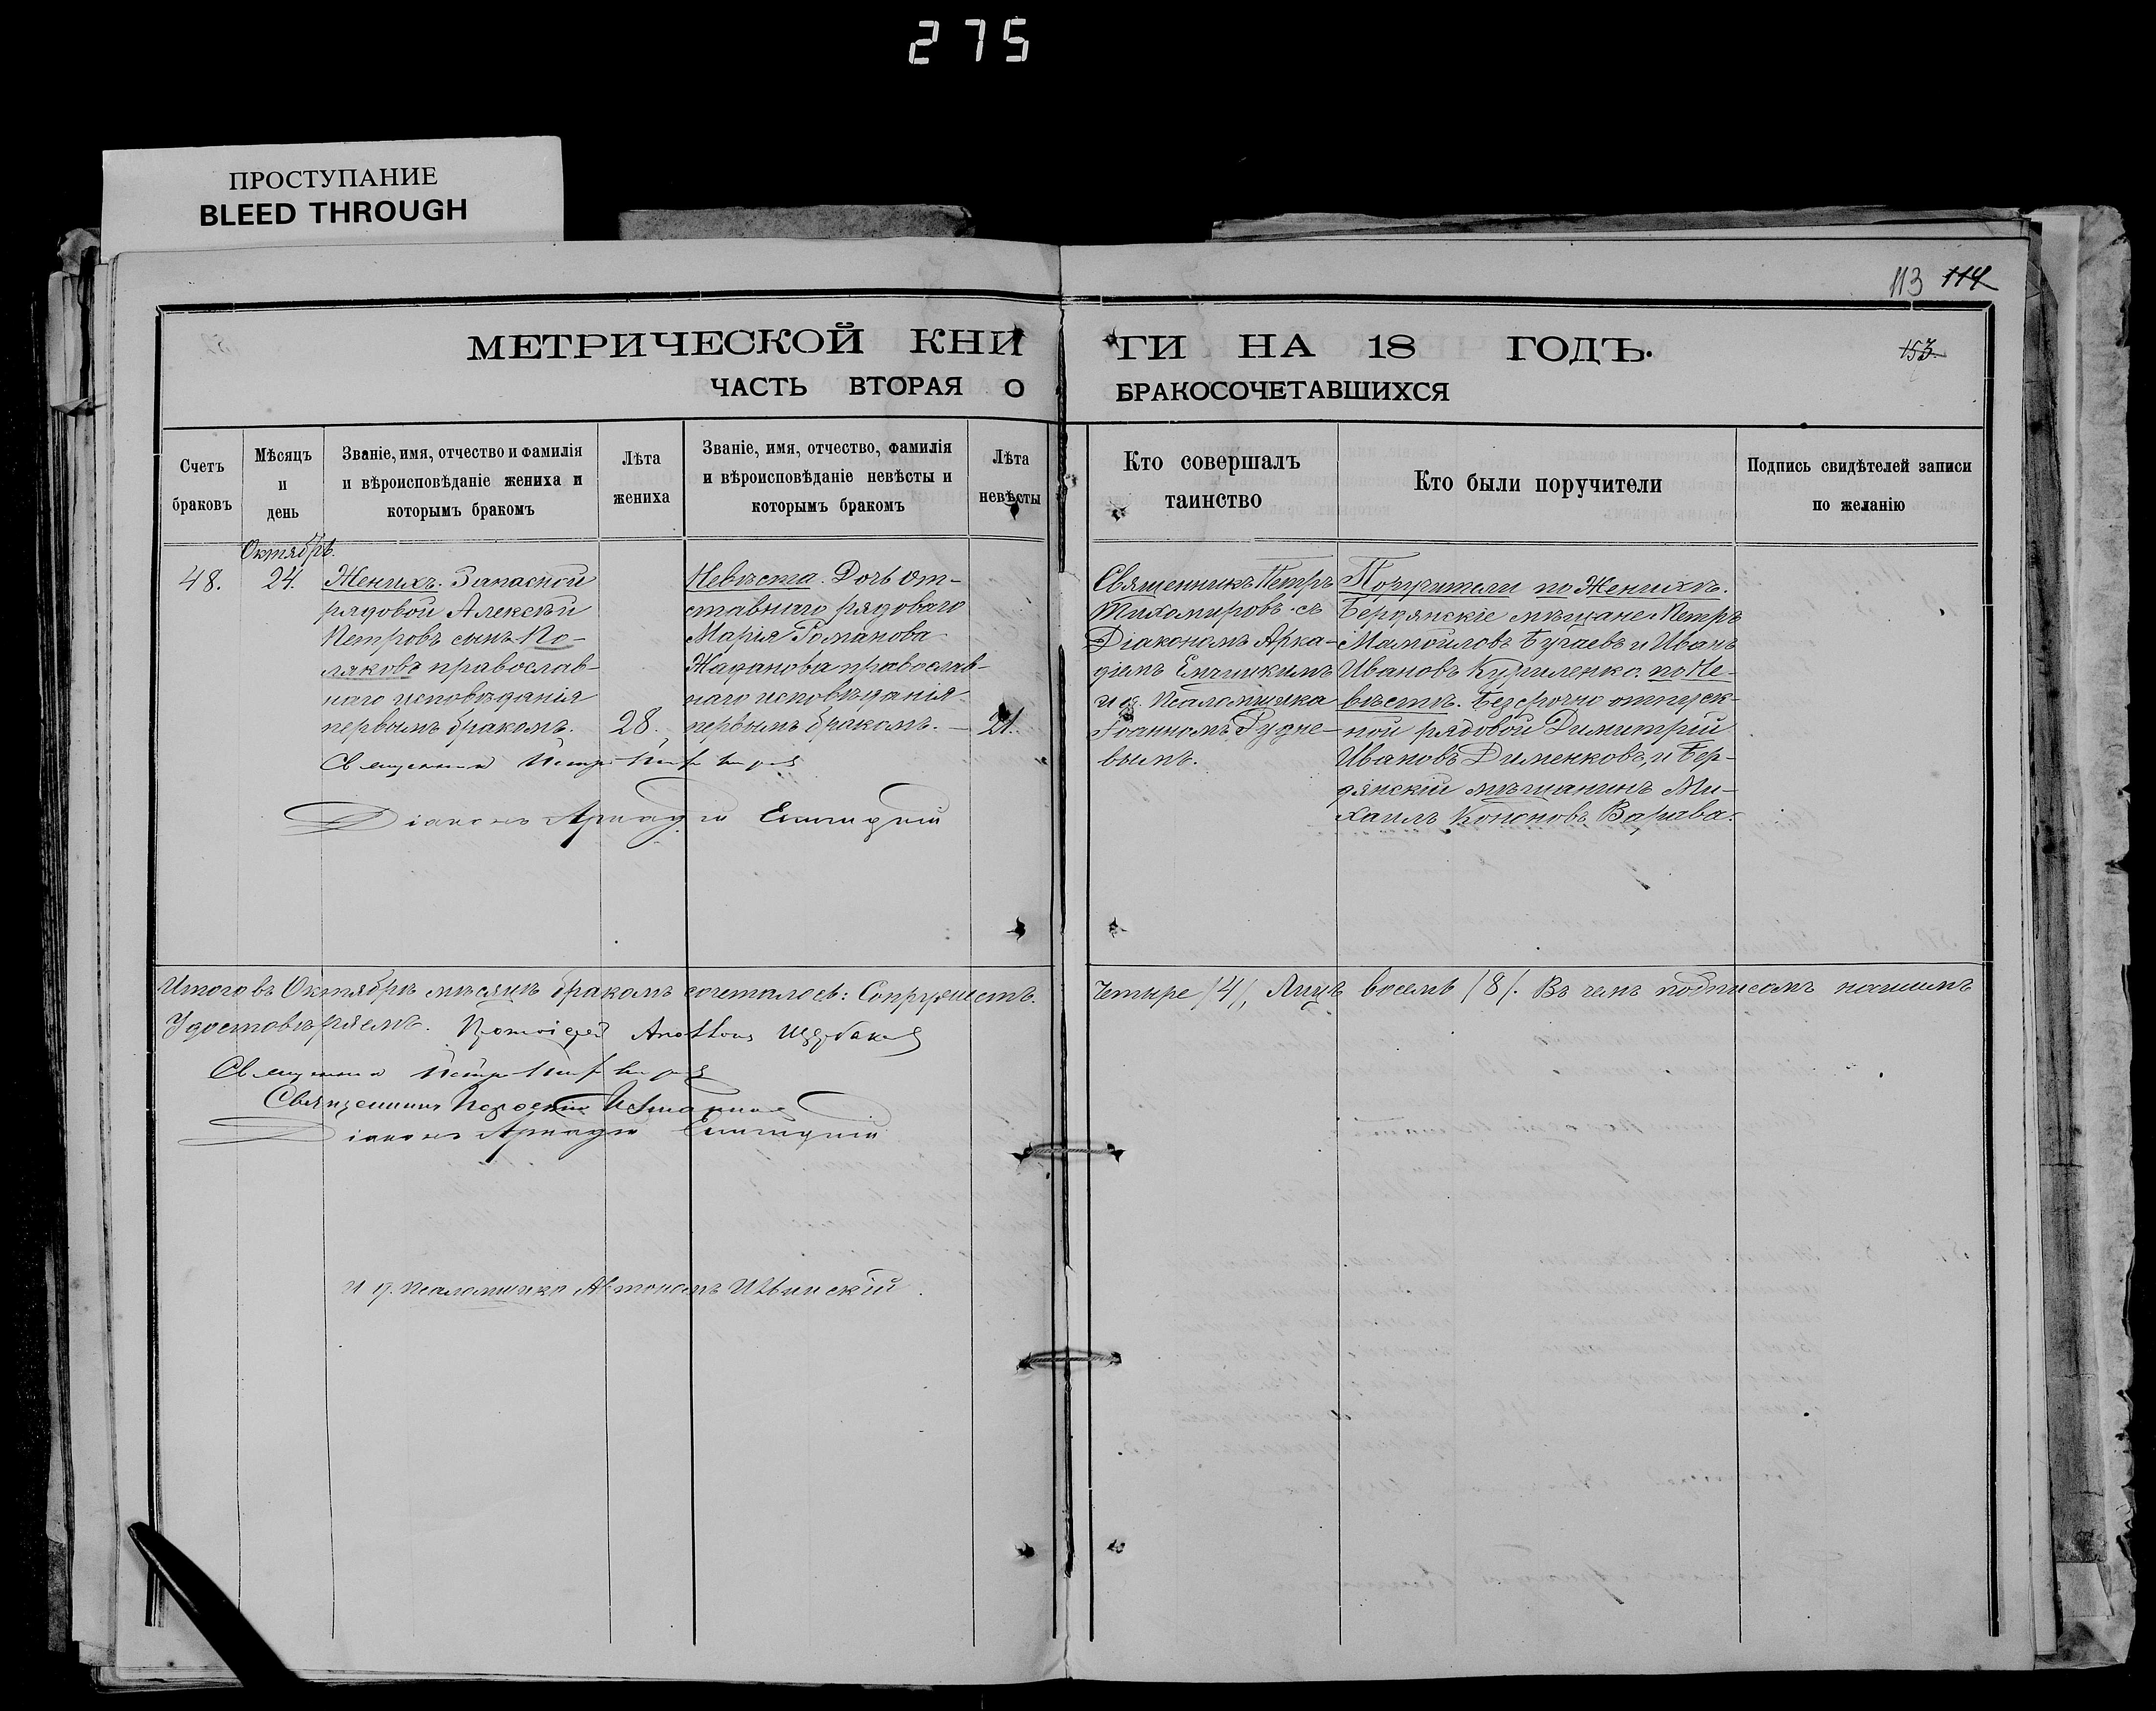 275
ПРОСТУПАНИЕ
BLEED THROUGH
113 114
МЕТРИЧЕСКОЙ КНИГИ НА 18 ГОДЪ.
153.
ЧАСТЬ ВТОРАЯ О БРАКОСОЧЕТАВШИХСЯ
Счетъ браковъ
Мѣсяцъ и день
Званіе, имя, отчество и фамилія
и вѣроисповѣданіе жениха и
которымъ бракомъ
Лѣта
жениха
Званіе, имя, отчество, фамилія
и вѣроисповѣданіе невѣсты и
которымъ бракомъ
Лѣта
невѣсты
Кто совершалъ
таинство
Кто были поручители
Подпись свидѣтелей записи
по желанію
48.
Октябрь.
24.
Женихъ. Запасной
рядовой Алексѣй
Петровъ сынъ По-
ляковъ православ-
наго исповѣданія
первымъ бракомъ.
28.
Невѣста. Дочь от-
ставнаго рядоваго
Марія Романова
православ-
наго исповѣданія
первымъ бракомъ. —
21.
Священникъ Петръ
Тихомировъ съ
Діакономъ Арка-
діемъ
и д. Псаломщика
Іоанномъ Рудне-
вымъ.
Поручители по Женихѣ.
Бердянскіе мѣщане Петръ
Мамойловъ Бугаевъ и Иванъ
Ивановъ Куриленко. по Не-
вѣстѣ. Безсрочно отпуск-
ной рядовой Димитрій
Ивановъ Дименковъ, и Бер-
дянскій мѣщанинъ Ми-
хаилъ Кононовъ Варава.
Священникъ Петръ Тихомировъ
Діаконъ Аркадій
Итого въ Октябрѣ мѣсяцѣ бракомъ сочеталось: Супружествъ. Четыре /4/, Лицъ восемь /8/. Въ чемъ подписомъ нашимъ
Удостовѣряемъ. Протоіерей Щербаковъ
Священникъ Петръ Тихомировъ
Священникъ
Діаконъ Аркадій
И д. Псаломщика Автономъ Ильинскій.